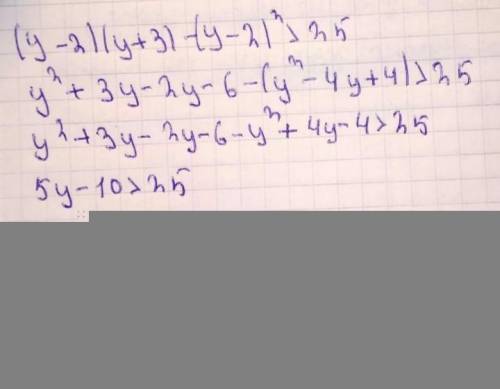 (y-2)(y+3)-(y-2)²>25
y²+3y-2y-6-(y²-4y+4)>25
y²+3y-2y-6-y²+4y-4>25
5y-10>25